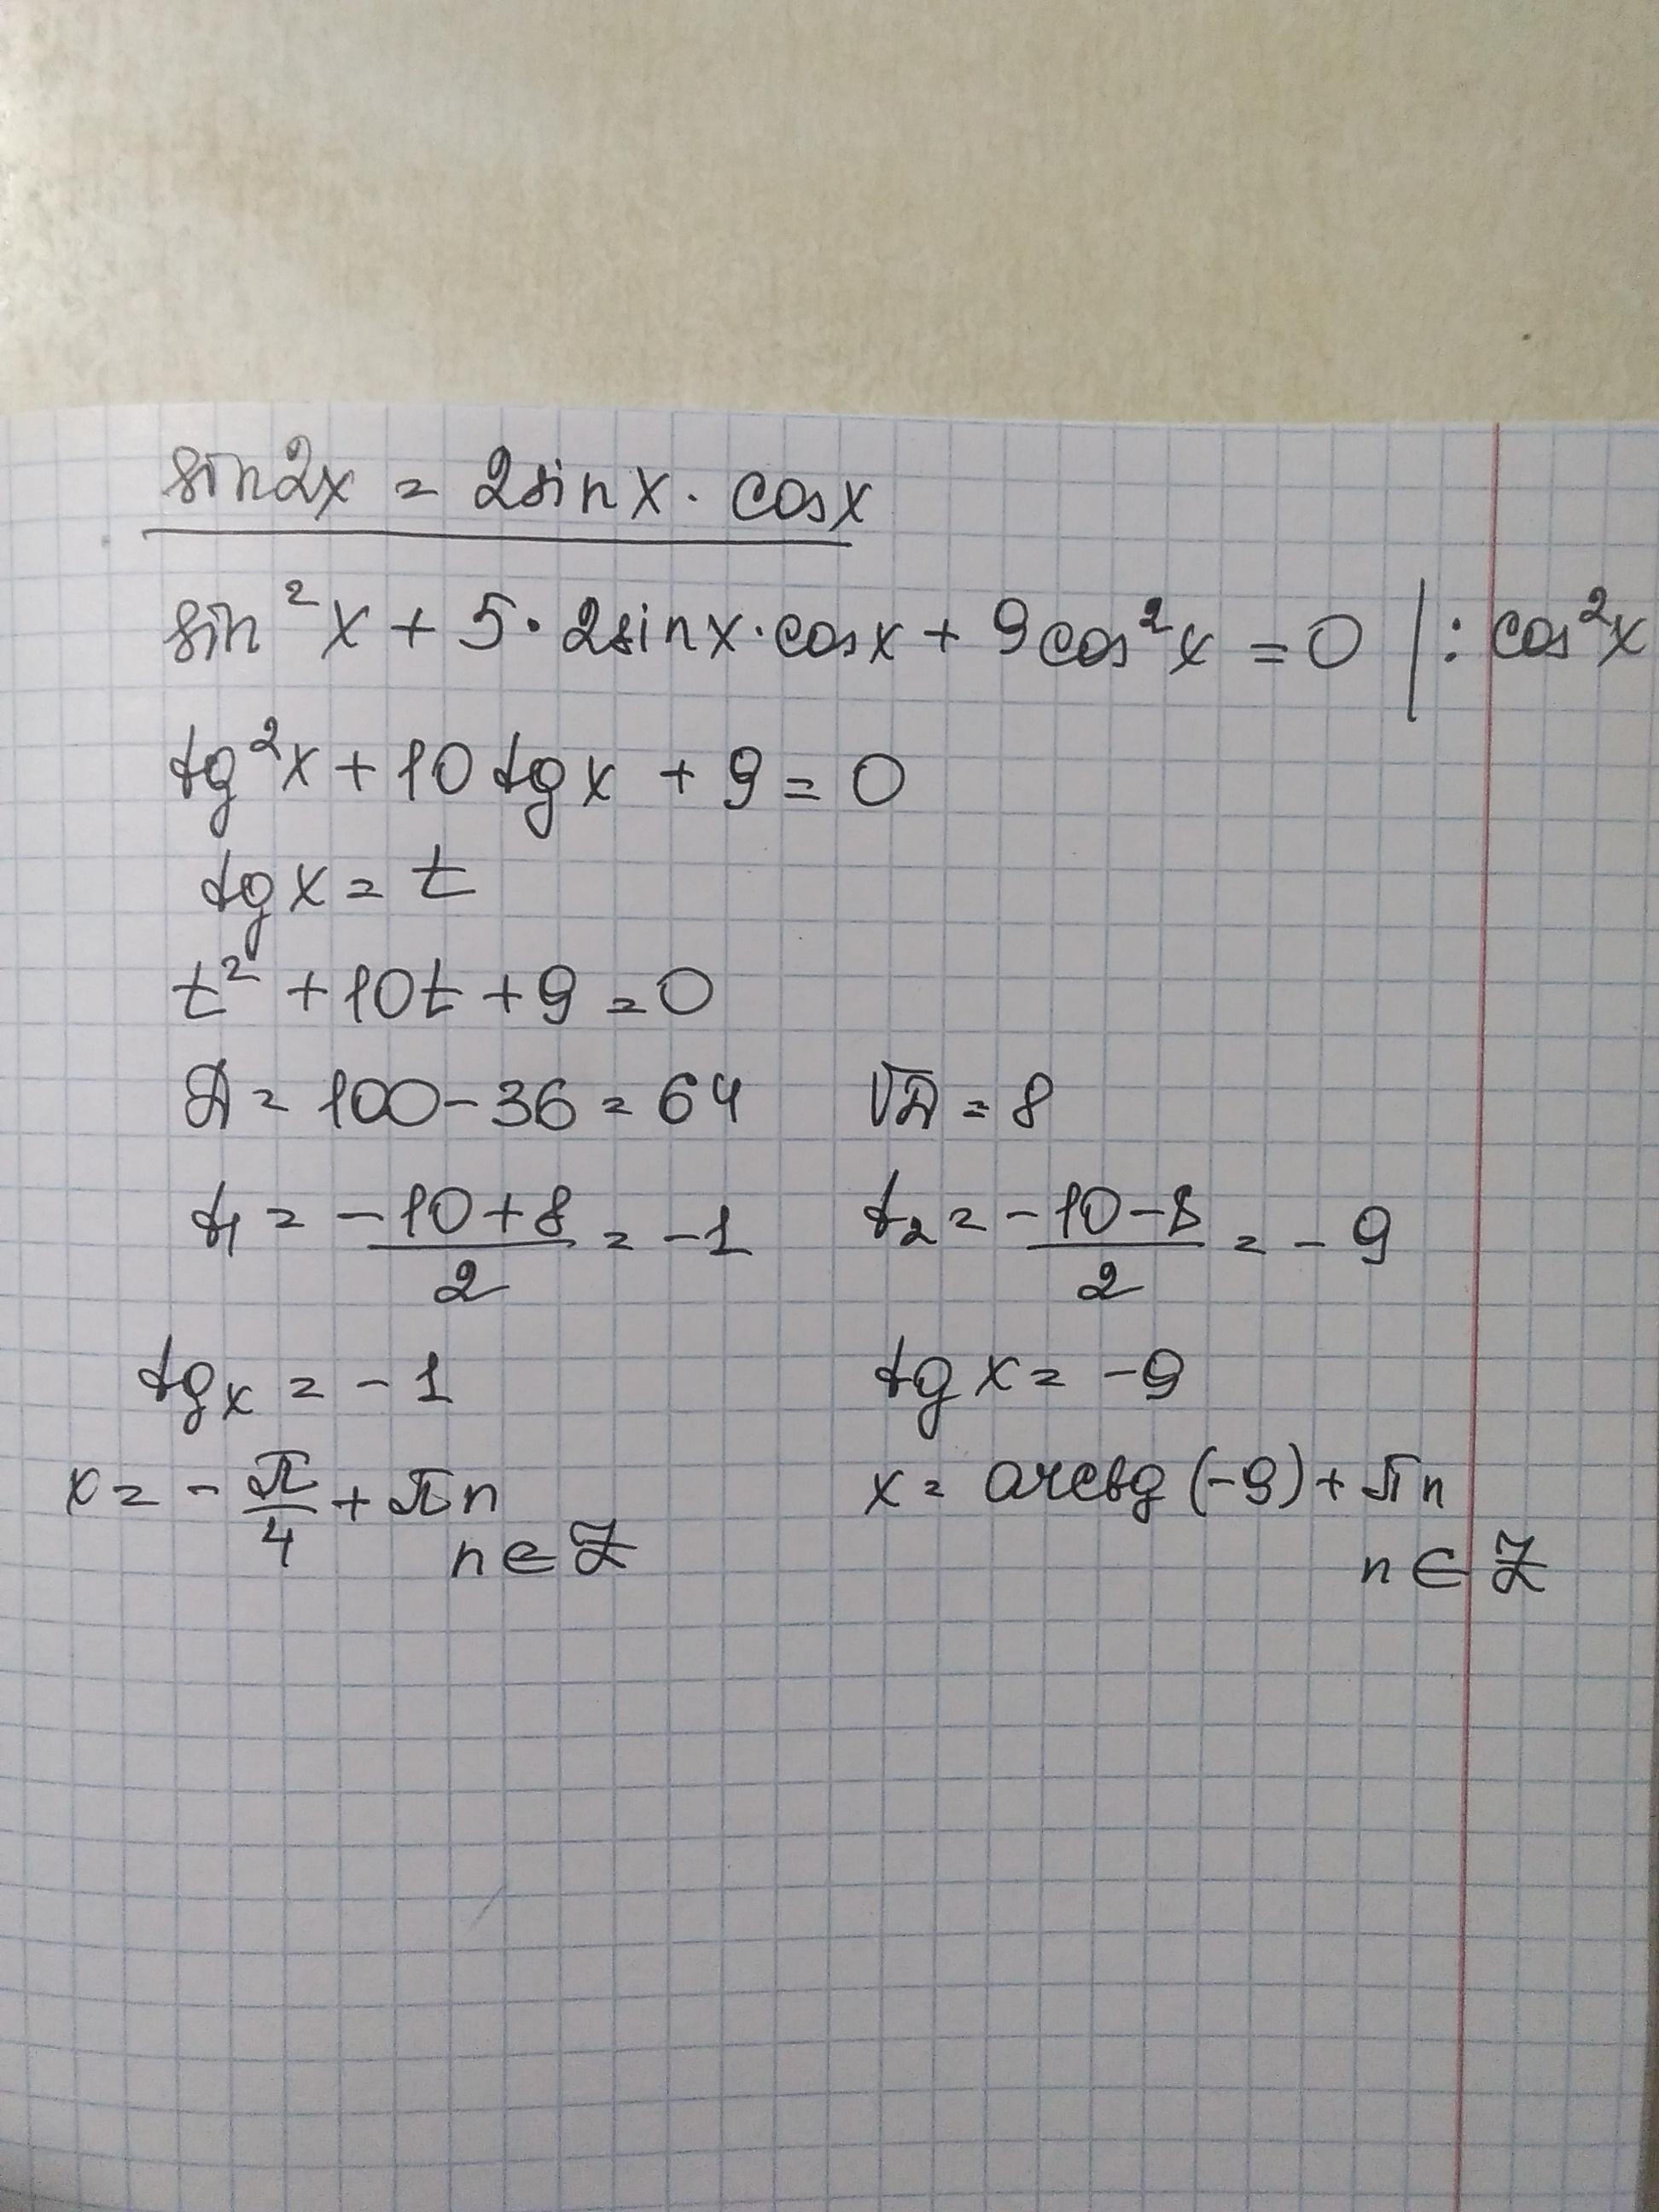 sin2x = 2sinx · cosx
sin²x + 5·2sinx·cosx + 9cos²x = 0 | : cos²x
tg²x + 10tgx + 9 = 0
tgx = t
t² + 10t + 9 = 0
D = 100 - 36 = 64 √D = 8
t₁ = (-10+8)/2 = -1 t₂ = (-10-8)/2 = -9
tgx = -1 tgx = -9
x = -π/4 + πn x = arctg(-9) + πn
n∈Z n∈Z